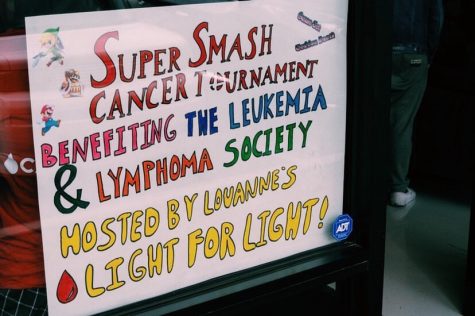 SUPER SMASH
CANCER TOURNAMENT
BENEFITING THE LEUKEMIA
& LYMPHOMA SOCIETY
HOSTED BY LOUANNE'S
LIGHT FOR LIGHT!
ADT